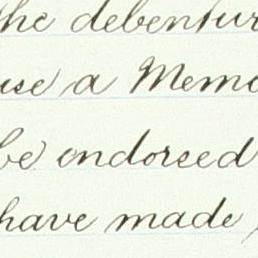 the debentur
use a Memo
be endorsed
have made